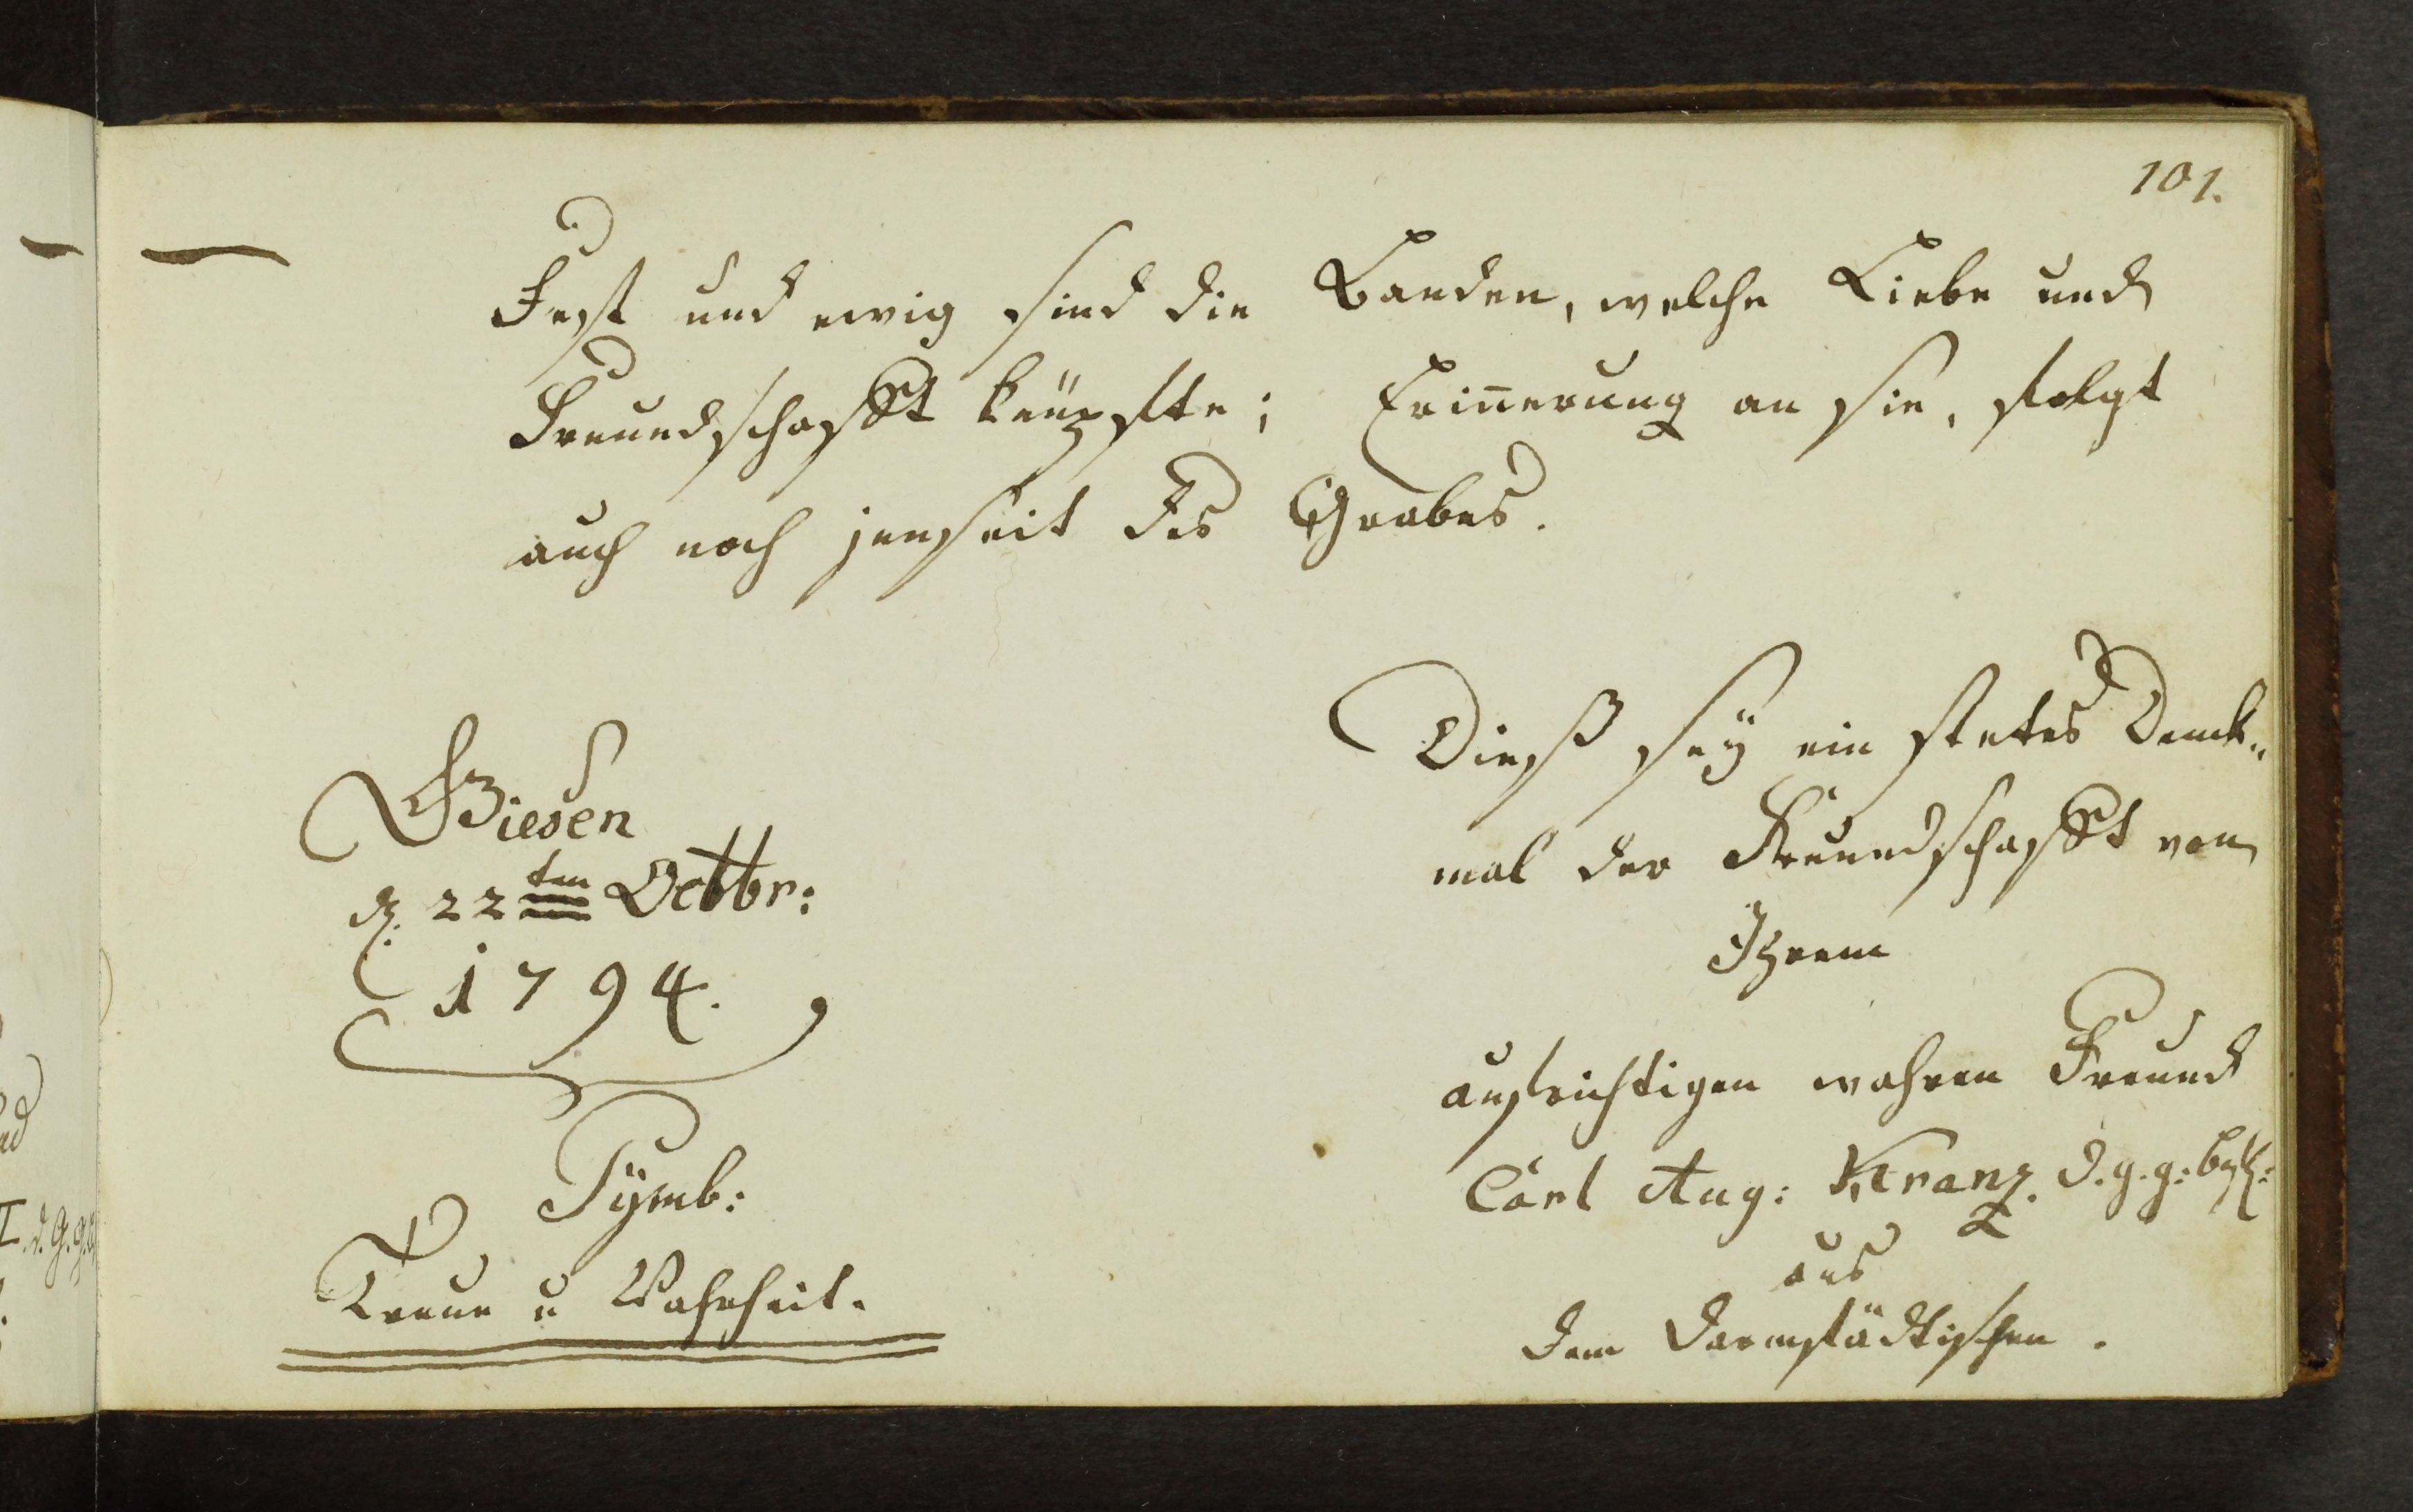 101.
Fest und ewig sind die Banden, welche Liebe und
Freundschafft knüpfte; Erin̄erung an sie, folgt
auch noch jenseit des Grabes.
Dieß seÿ ein stetes Denck„
mal der Freundschafft von
Ihrem
aufrichtigen wahren Freund
Carl Aug: Kranz. d. g. g: beß:
aus
dem Darmstädtischen.
Giesen
d. 22ten Octbr:
1794.
Sÿmb:
Treue u Wahrheit.